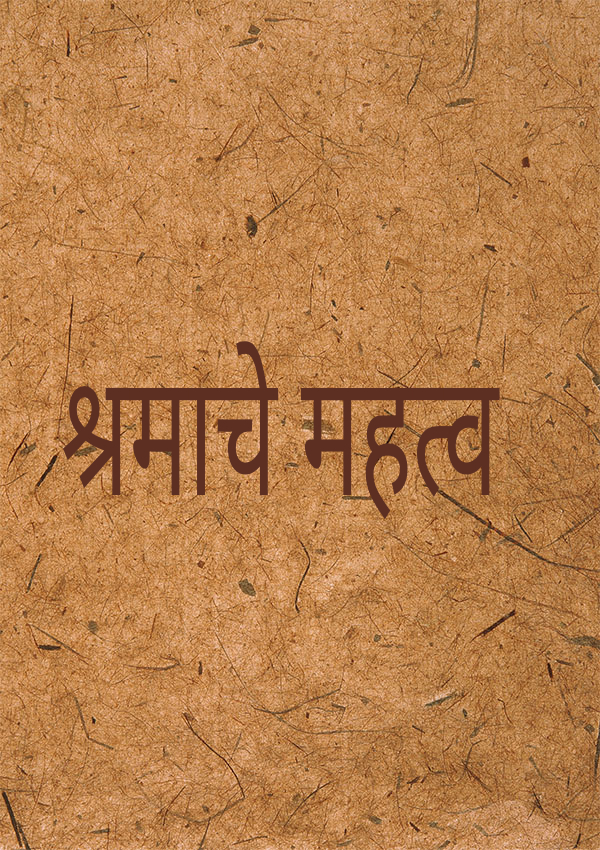 श्रमाचे महत्व